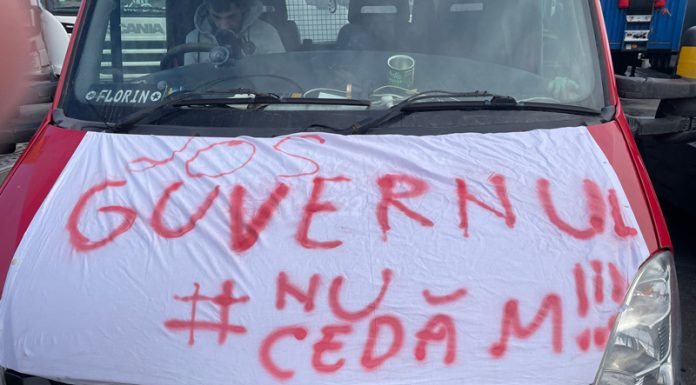 SCANIA
FLORIN
JOS
GUVERNUL
# NU
CEDĂM!!!